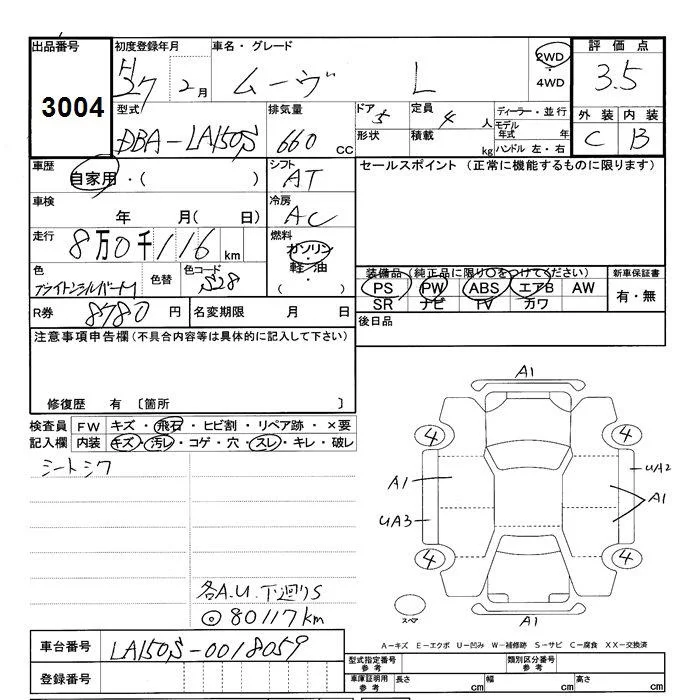 出品番号 初度登録年月 車名・グレード 評価点
3004 H27 2月 ムーヴ L 2WD・4WD 3.5
型式 排気量 ドア 5 定員 4人 ディーラー・並行 外装 内装
DBA-LA150S 660 CC 形状 積載 kg モデル年式 年 ハンドル 左・右 C B
車歴 自家用・( ) シフト AT セールスポイント (正常に機能するものに限ります)
車検 年 月( 日) 冷房 AC
走行 8万0千116km 燃料 ガソリン・軽・油・( )
色 ブライトシルバーM 色替 色コード S28 装備品(純正品に限り○をつけてください) 新車保証書
PS PW ABS エアB AW 有・無
SR ナビ TV カワ
R券 8780円 名変期限 月 日 後日品
注意事項申告欄(不具合内容等は具体的に記入して下さい)
修復歴 有 〔箇所 〕
検査員 FW キズ・飛石・ヒビ割・リペア跡・×要
記入欄 内装 キズ・汚レ・コゲ・穴・スレ・キレ・破レ
シートシワ
各A.U.下廻りS
◎80117km
A1
4 4
A1 UA2
A1
UA3
4 4
スペア A1
A-キズ E-エクボ U-凹み W-補修跡 S-サビ C-腐食 XX-交換済
車台番号 LA150S-0018059
登録番号
型式指定番号 参考 類別区分番号 参考
車庫証明用 参考 長さ cm 幅 cm 高さ cm